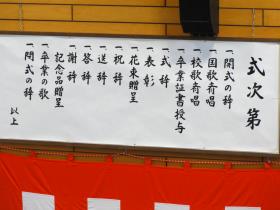 式次第
一開式の辞
一国歌斉唱
一校歌斉唱
一卒業証書授与
一式辞
一表彰
一花束贈呈
一祝辞
一送辞
一答辞
一謝辞
記念品贈呈
一卒業の歌
一閉式の辞
以上